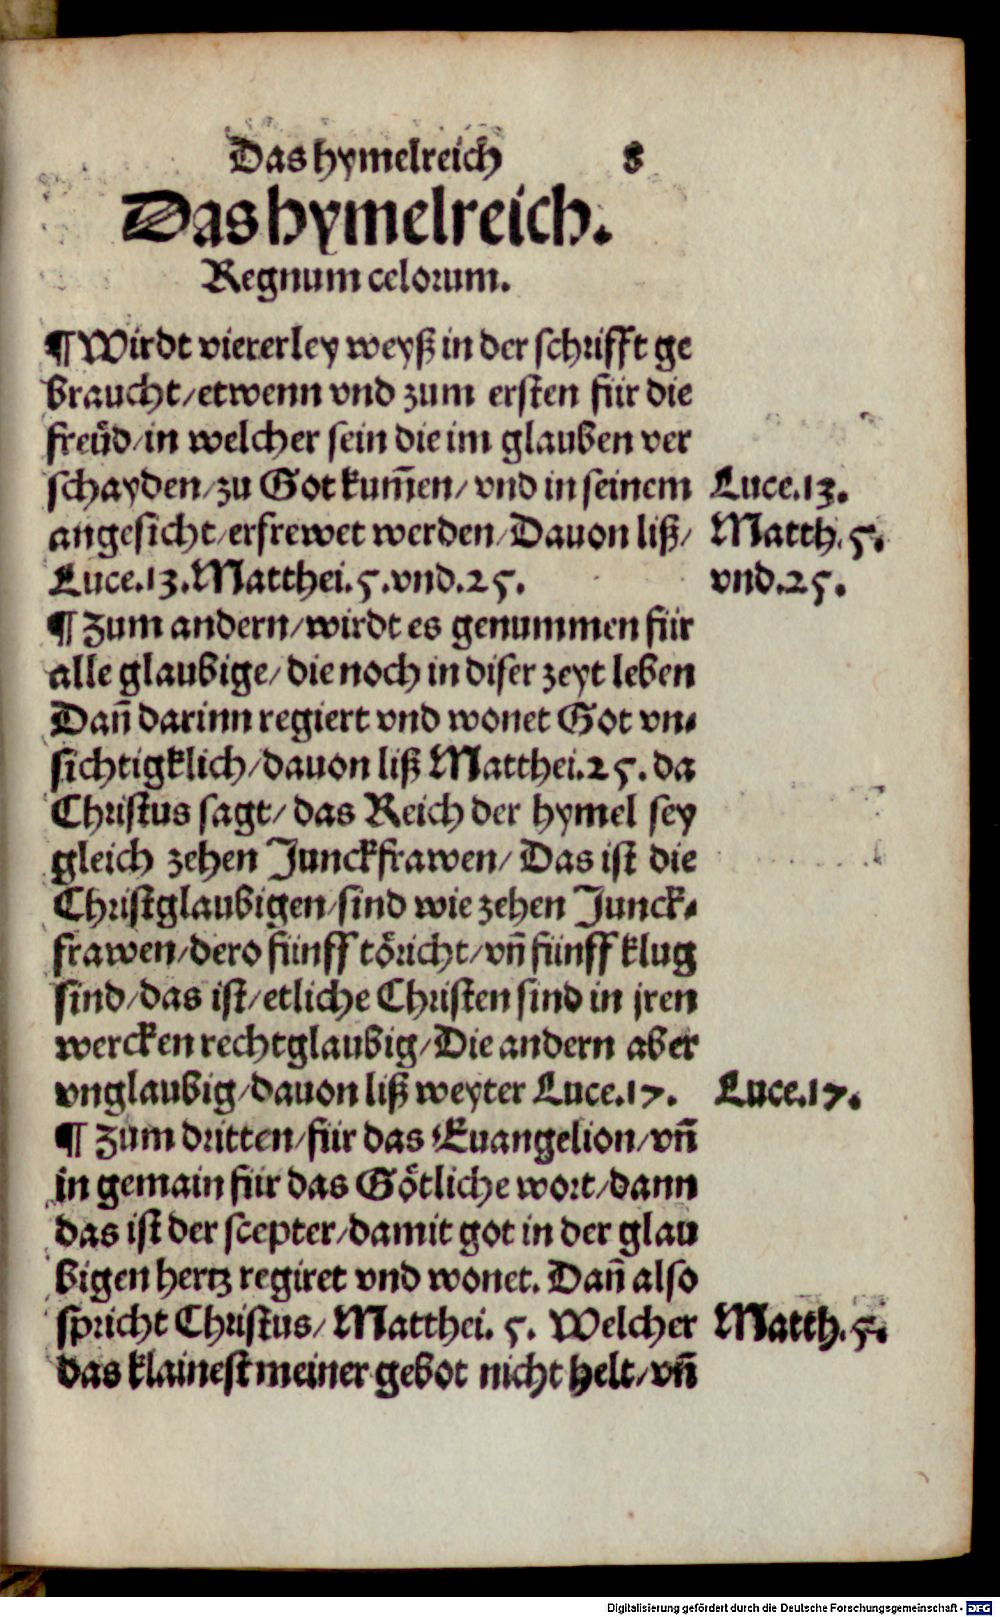 Das hymelreich 8
Das hymelreich.
Regnum celorum.
¶ Wirdt viererley weyß in der schrifft ge
braucht/etwenn vnd zum ersten für die
freüd/in welcher sein die im glauben ver
schayden/zu Got kum̃en/ vnd in seinem Luce.13.
angesicht/erfrewet werden/Dauon liß/ Matth.5.
Luce.13.Matthei.5.vnd.25. vnd.25.
¶ Zum andern/wirdt es genummen für
alle glaubige/die noch in diser zeyt leben
Dañ darinn regiert vnd wonet Got vn-
sichtigklich/dauon liß Matthei.25. da
Christus sagt/ das Reich der hymel sey
gleich zehen Junckfrawen/ Das ist die
Christglaubigen/sind wie zehen Junck-
frawen/dero fünff töricht/vñ fünff klug
sind/das ist/etliche Christen sind in jren
wercken rechtglaubig/Die andern aber
vnglaubig/dauon liß weyter Luce.17. Luce.17.
¶ Zum dritten/für das Euangelion/vñ
in gemain für das Götliche wort/dann
das ist der scepter/damit got in der glau
bigen hertz regiret vnd wonet. Dañ also
spricht Christus/ Matthei. 5. Welcher Matth.5.
das klainest meiner gebot nicht helt/vñ
Digitalisierung gefördert durch die Deutsche Forschungsgemeinschaft - DFG